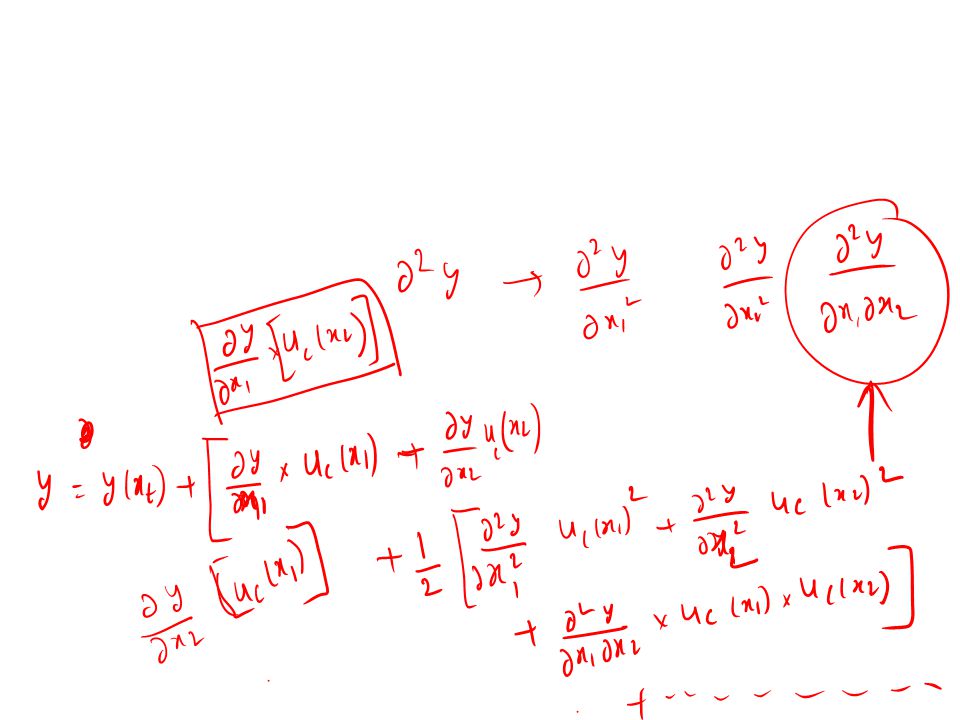 ∂²y → ∂²y/∂x₁² ∂²y/∂x₂² ∂²y/∂x₁∂x₂
∂y/∂x₁ × [u_c(x₂)]
y = y(x_t) + [∂y/∂x₁ × u_c(x₁) + ∂y/∂x₂ u_c(x₂)
∂y/∂x₂ [u_c(x₁)]
+ 1/2 [∂²y/∂x₁² u_c(x₁)² + ∂²y/∂x₂² u_c(x₂)²
+ ∂²y/∂x₁∂x₂ × u_c(x₁) × u_c(x₂)]
+ - - - - - - -